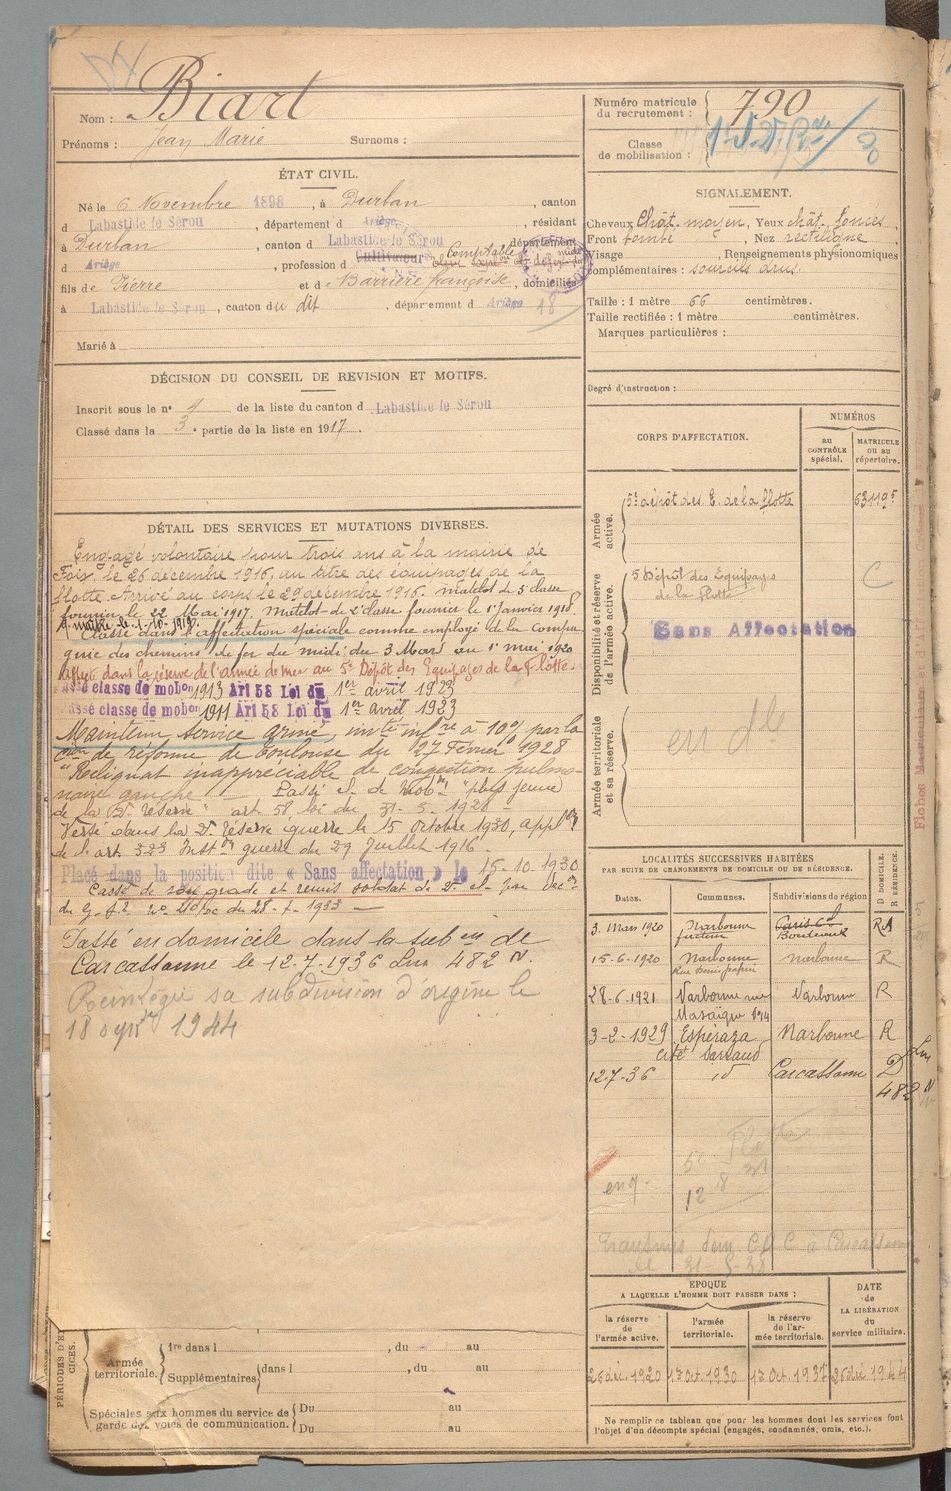 Biart
Nom :
Prénoms : Jean Marie Surnoms :
Numéro matricule du recrutement : 790
Classe de mobilisation :
ÉTAT CIVIL.
Né le 6 Novembre 1898, à Durban, canton
d Labastide le Sérou, département d Ariège, résidant
à Durban, canton d Labastide le Sérou, département
d Ariège, profession d Cultivateur Comptable
fils de Pierre et de Barrière françoise, domiciliés
à Labastide le Serou, canton du dit, département d Ariège
18
Marié à
SIGNALEMENT.
Cheveux chât. moyen, Yeux chât. foncés
Front bombé, Nez rectiligne
Visage Renseignements physionomiques
complémentaires : sourcils arus.
Taille : 1 mètre 66 centimètres.
Taille rectifiée : 1 mètre centimètres.
Marques particulières :
Degré d'instruction :
DÉCISION DU CONSEIL DE REVISION ET MOTIFS.
Inscrit sous le n° 4 de la liste du canton d Labastide le Sérou
Classé dans la 3e partie de la liste en 1917.
DÉTAIL DES SERVICES ET MUTATIONS DIVERSES.
Engagé volontaire pour trois ans à la mairie de
Foix, le 26 décembre 1916, au titre des équipages de la
flotte. Arrivé au corps le 29 décembre 1916. Matelot de 3e classe
fourrier le 22 Mai 1917. Matelot de 2e classe fourrier le 1er janvier 1918.
maître le 1-10-1919.
Classé dans l'affectation spéciale comme employé de la compa
gnie des chemins de fer du midi du 3 Mars au 1er mai 1920
dans la réserve de l'armée de mer au 5e Dépôt des Equipages de la Flotte.
Passé classe de mobon 1913 Art 58 Loi du 1er avril 1923
Passé classe de mobon 1911 Art 58 Loi du 1er avril 1923
Maintenu service armé, invté infre à 10% par la
con de réforme de Toulouse du 27 Février 1928
"Reliquat inappréciable de congestion pulmo-
naire gauche" Passé cl. de mobon "plus jeune
de la 2e réserve" art. 58 loi du 31-3-1928
Versé dans la 2e Réserve guerre le 15 Octobre 1930, applon
de l'art. 323 Inston guerre du 29 Juillet 1916.
Placé dans la position dite « Sans affectation » le 15-10-1930
Cassé de son grade et remis soldat de 2e cl.
du 28-7-1933
Passé en domicile dans la subon de
Carcassonne le 12-7-1936 Lun 482 N.
Reintègre sa subdivision d'origine le
18 1944
CORPS D'AFFECTATION.
NUMÉROS
au CONTRÔLE spécial.
MATRICULE OU AU répertoire.
Armée active.
5e dépôt des E. de la flotte 63119 5
Disponibilité et réserve de l'armée active.
5 Dépôt des Équipages
de la flotte
C
Sans Affectation
Armée territoriale et sa réserve.
LOCALITÉS SUCCESSIVES HABITÉES
PAR SUITE DE CHANGEMENTS DE DOMICILE OU DE RÉSIDENCE.
Dates. Communes. Subdivisions de région D DOMICILE. R RÉSIDENCE.
3. Mars 1920 Narbonne Bordeaux
15-6-1920 Narbonne Narbonne R
Rue Denis papin
28-6-1921 Narbonne rue Narbonne R
Mosaïque
3-2-1929 Esperaza Narbonne R
cité
12.7-36 id Carcassonne D
Lun
482 N
eng.
12
Transmis
ÉPOQUE
A LAQUELLE L'HOMME DOIT PASSER DANS :
la réserve de l'armée active.
l'armée territoriale.
la réserve de l'armée territoriale.
DATE de LA LIBÉRATION du service militaire.
26 déc. 1920 1er Oct. 1930 1er Oct. 1937 26 déc 1944
Ne remplir ce tableau que pour les hommes dont les services font
l'objet d'un décompte spécial (engagés, condamnés, omis, etc.).
Armée territoriale.
1re dans l , du au
Supplémentaires dans l , du au
Spéciales aux hommes du service de garde des voies de communication.
Du au
Du au